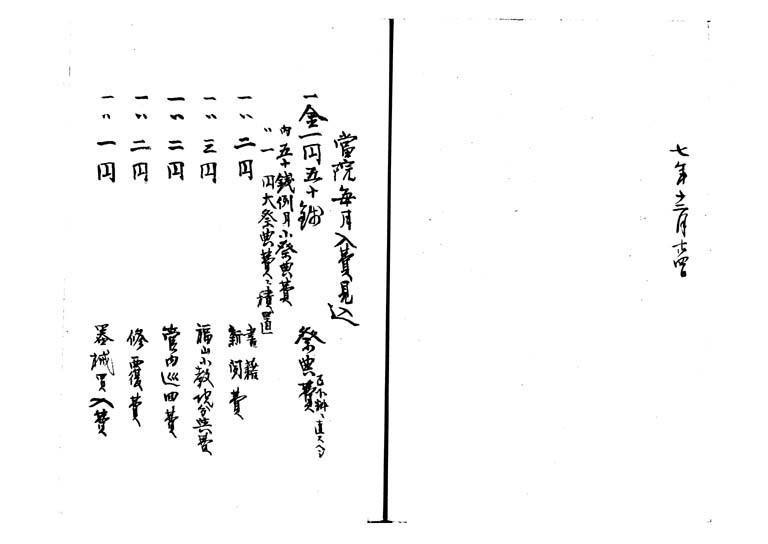 七年十二月十四日
當院毎月入費見込
一金一円五十銭 祭典費
内五十銭例月小祭典費
〃一円大祭典費ニ積置
一〃二円 書籍新聞費
一〃三円 福山小教院分與費
一〃二円 管内巡回費
一〃二円 修覆費
一〃一円 器械買入費